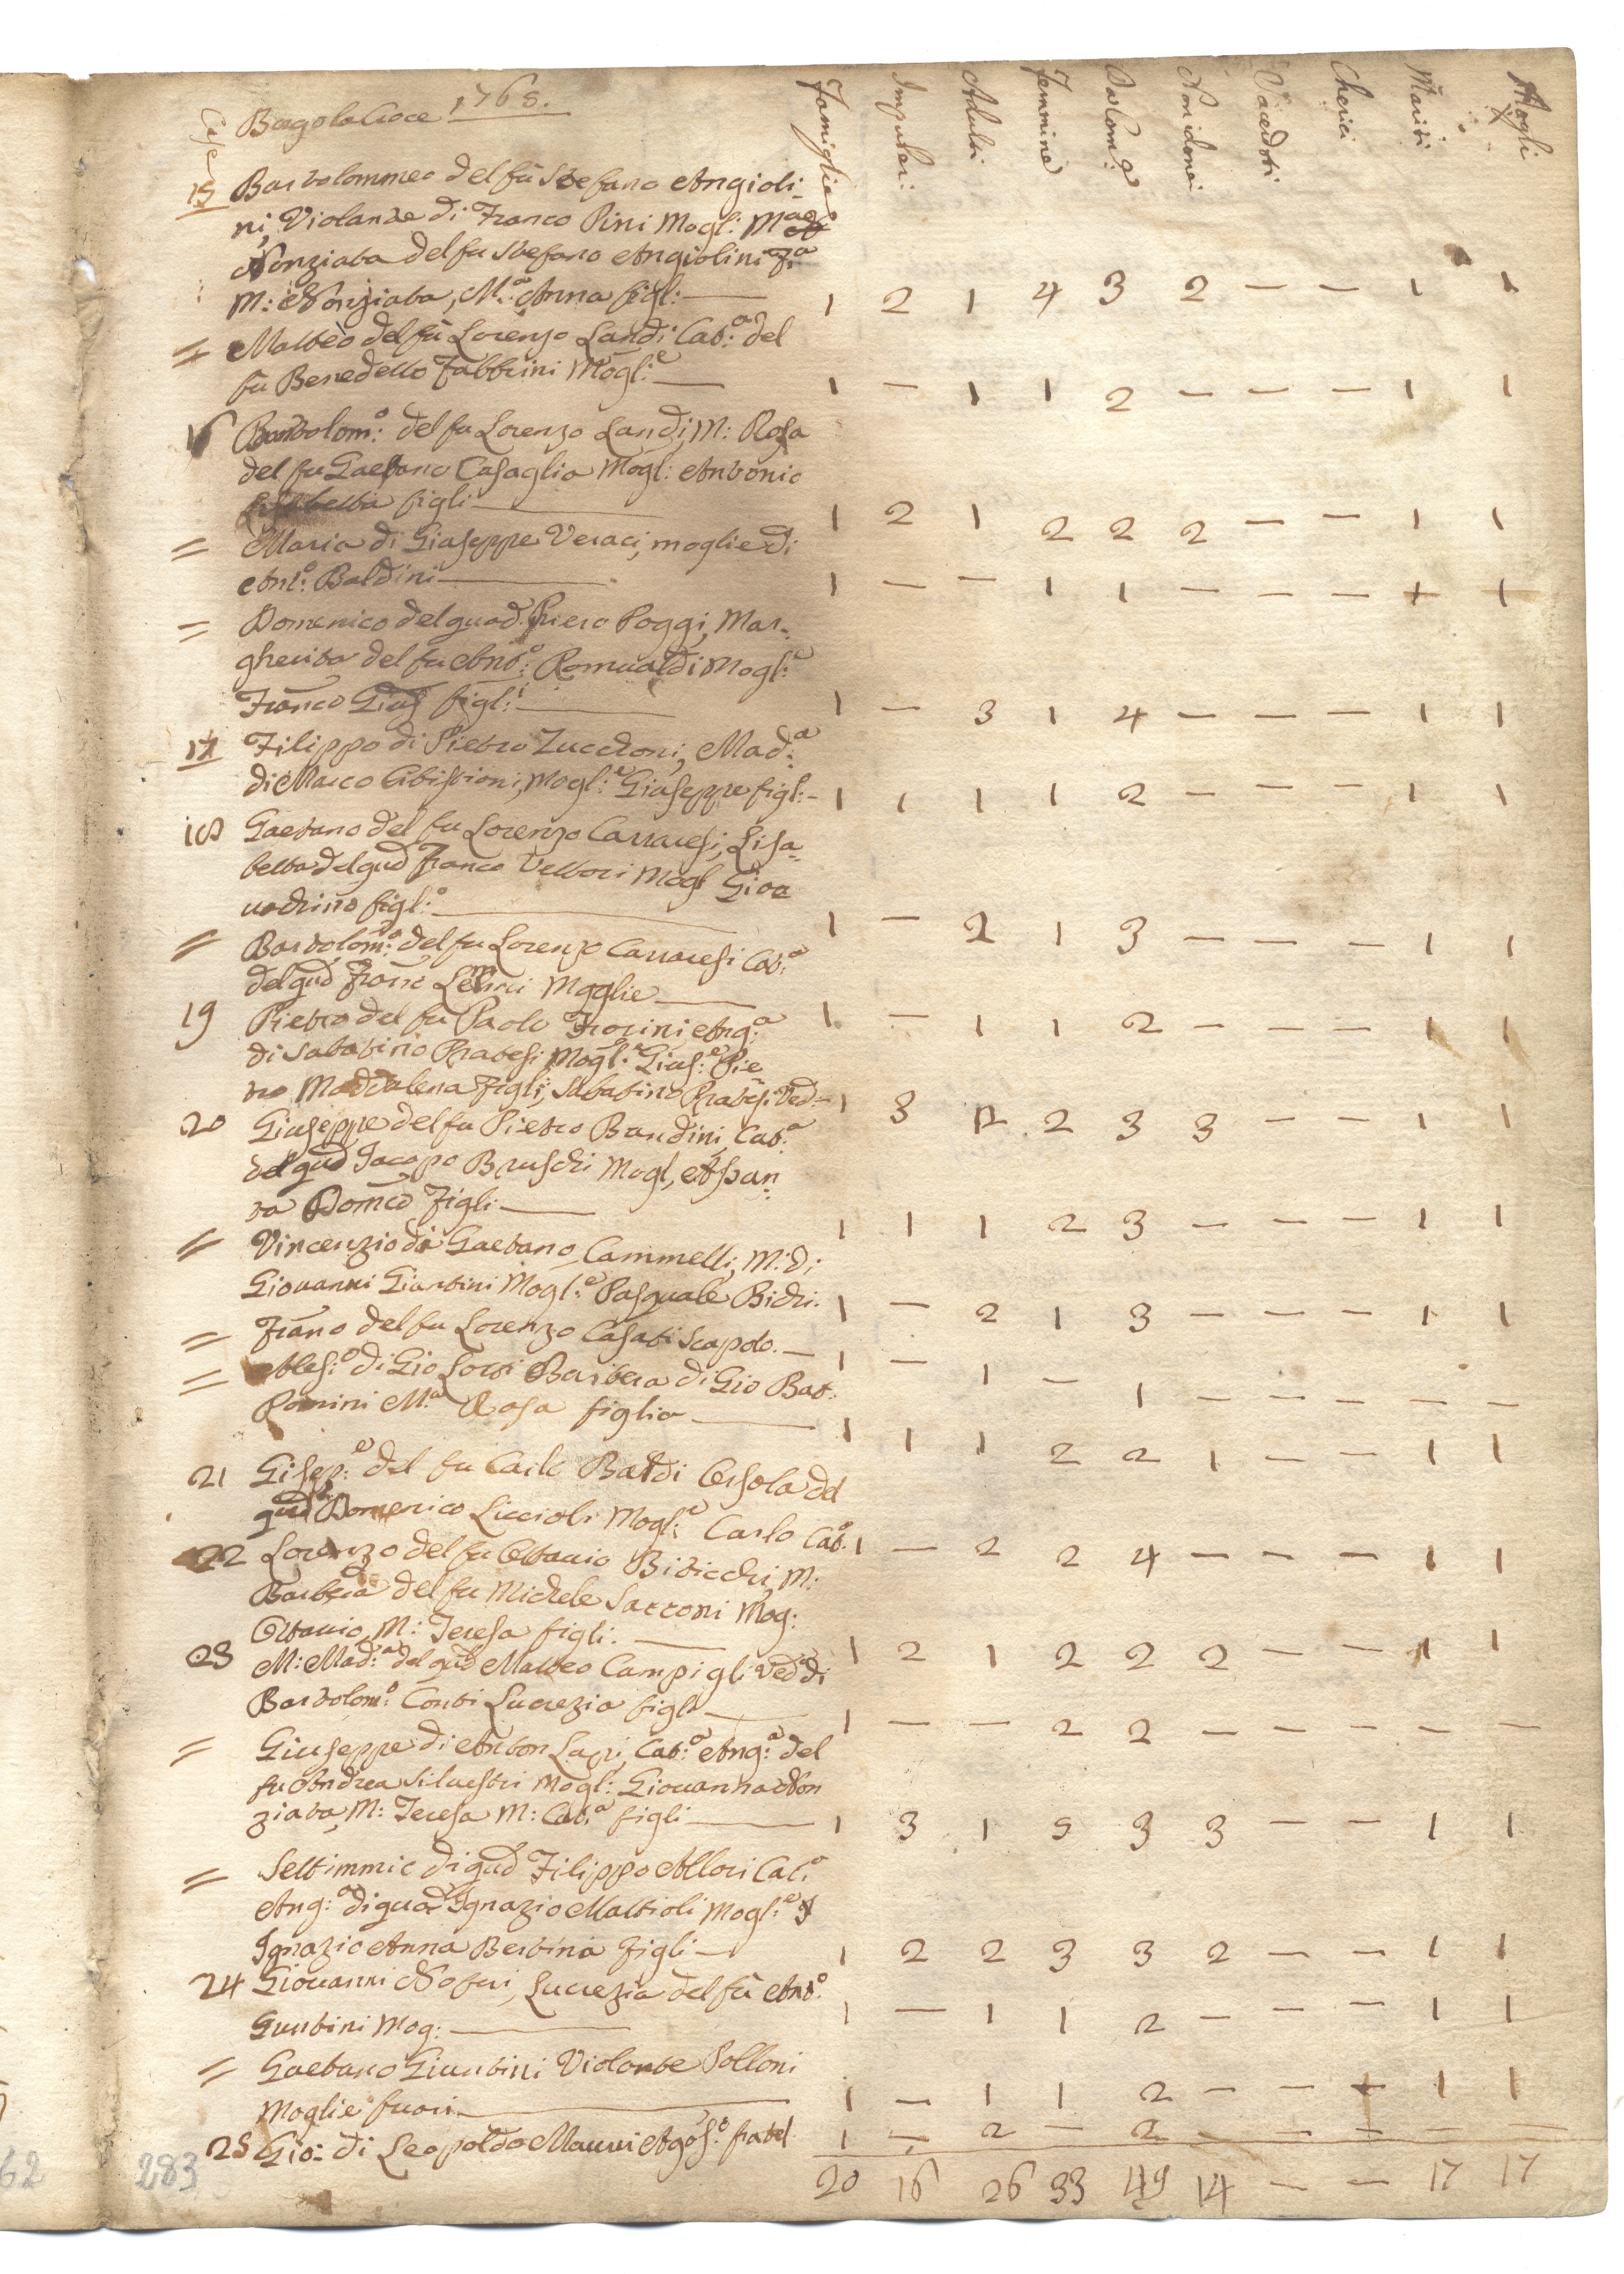 Case
Borgo la Croce 1768.
Famiglie Impuberi: Adulti Femmine Da Com:ne Non idonei Sacerdoti Cherici Mariti Mogli
15 Bartolommeo del fù Stefano Angioli-
ni, Violante di Franco Pini Mogl:
Nonziata del fu Stefano Angiolini
M: Nonziata, M:a Anna figl: 1 2 1 4 3 2 — — 1 1
= Matteo del fù Lorenzo Landi Cat:a del
fù Benedetto Fabbrini Mogl:e 1 — 1 1 2 — — — 1 1
16 Bartolom:o del fu Lorenzo Landi, M: Rosa
del fu Gaetano Casaglia Mogl: Antonio
figli 1 2 1 2 2 2 — — 1 1
= Maria di Giuseppe Veraci, moglie di
Ant:o Baldini 1 — — 1 1 — — — + +
= Domenico del quad. Piero Poggi, Mar-
gherita del fu Ant:o Romualdi Mogl:e
Franco Gius figl:i 1 — 3 1 4 — — — 1 1
17 Filippo di Pietro Zuccroni, Mad:a
di Marco Mogl:e Giuseppe figl: 1 1 1 1 2 — — — 1 1
18 Gaetano del fu Lorenzo Carraresi, Lisa-
betta del qud Franco Vettori Mogl
figl:o 1 — 2 1 3 — — — 1 1
= Bartolom:o del fu Lorenzo Carraresi Cat:a
del qud Franc Moglie 1 — 1 1 2 — — — 1 1
19 Pietro del fu Paolo Frosini, Ang:a
di Sabatino Pratesi Mogl:e Gius:e Pie
ro Maddalena Figli, Sabatino Pratesi Ved: 1 3 2 2 3 3 — — 1 1
20 Giuseppe del fu Pietro Bandini, Cat:a
del qud Jacopo Bruschi Mogl, Assun-
ta Domco Figli 1 1 1 2 3 — — — 1 1
= Vincenzio di Gaetano Cammelli, M: di
Giovanni Giuntini Mogl:e Pasquale Bichi. 1 — 2 1 3 — — — 1 1
= Frano del fu Lorenzo Casati Scapolo. 1 — 1 — 1 — — — — —
= Aless:o di Gio Barbera di Gio Bat:
Romini M:a Rosa figlia 1 1 1 2 2 1 — — 1 1
21 Gisep:e del fu Carlo Baldi Orsola del
qud Domenico Liccioli Mogl:e Carlo Cat:a 1 — 2 2 4 — — — 1 1
22 Lorenzo del fu Ottavio Biticchi, M:
Barbera del fu Michele Sarroni Mog:
Ottavio, M: Teresa figli. 1 2 1 2 2 2 — — 1 1
23 M: Mad:a del qud Matteo Campigli Ved:a di
Bartolom:o Conti Lucrezia figl: 1 — — 2 2 — — — — —
= Giuseppe di Anton Lapi, Cat:a Ang:a del
fu Andrea Silvestri Mogl: Giovanna Non
ziata, M: Teresa M: Cat:a figli 1 3 1 5 3 3 — — 1 1
= Settimmio di qud Filippo Allori Cat:a
Ang:a di quad Ignazio Mattioli Mogl:e
Ignazio Anna Bertina Figli 1 2 2 3 3 2 — — 1 1
24 Giovanni Nofrei, Lucrezia del fù Ant:o
Guntini Mog: 1 — 1 1 2 — — — 1 1
= Gaetano Giuntini Violante Polloni
Moglie fuori 1 — 1 1 2 — — + 1 1
25 Gio: di Leopoldo Mauri Agos:o fratel 1 — 2 — 2 — — — — —
20 16 26 33 49 14 — — 17 17
62 283